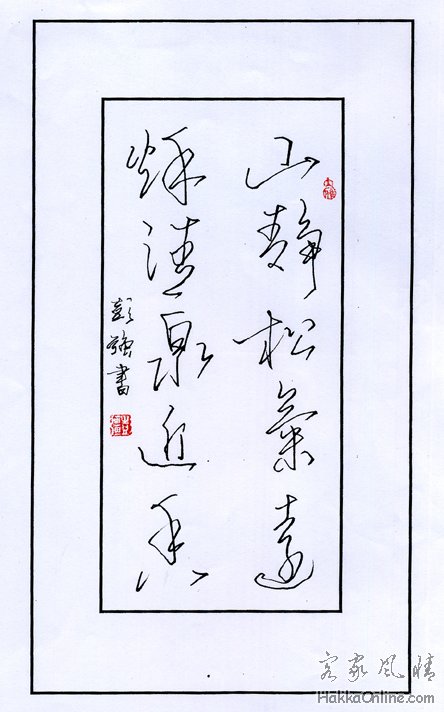 山静松氣遠
秌清泉近香
彭强書
客家风情
HakkaOnline.com